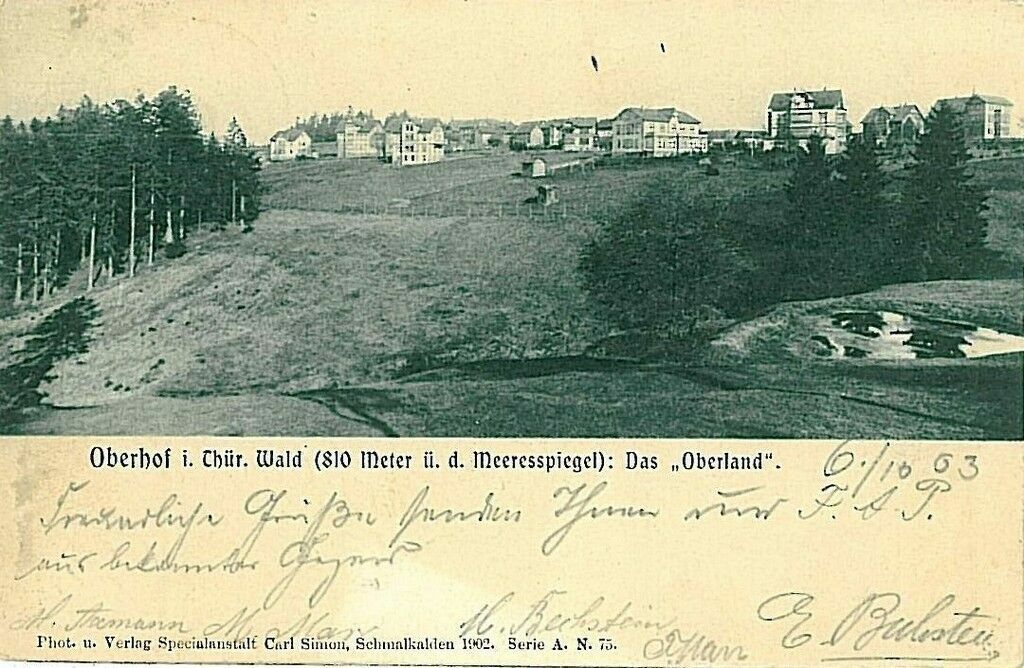 Oberhof i. Thür. Wald (810 Meter ü. d. Meeresspiegel): Das „Oberland".
6./10 03
Freundliche Grüße senden Ihnen und F. A. P.
aus bekannter Gegend
M. Axmann M. May H. Bechstein E.
Phot. u. Verlag Specialanstalt Carl Simon, Schmalkalden 1902. Serie A. N. 75.